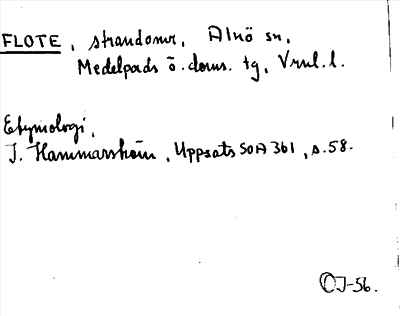 FLOTE, strandomr, Alnö sn,
Medelpads ö. doms. tg, Vnrl. l.
Etymologi,
J. Hammarström, Uppsats SOA 361, s. 58.
OJ-56.